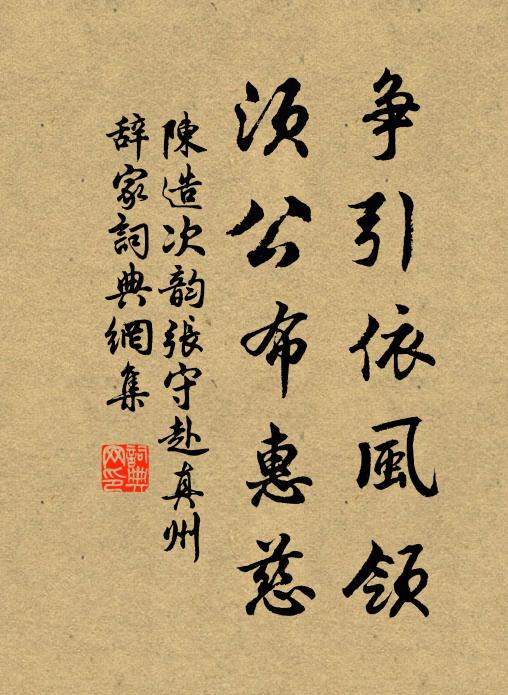 争引依風領
須公布惠慈
陳造次韵張守赴真州
辞家詞典網集
詞典
网印